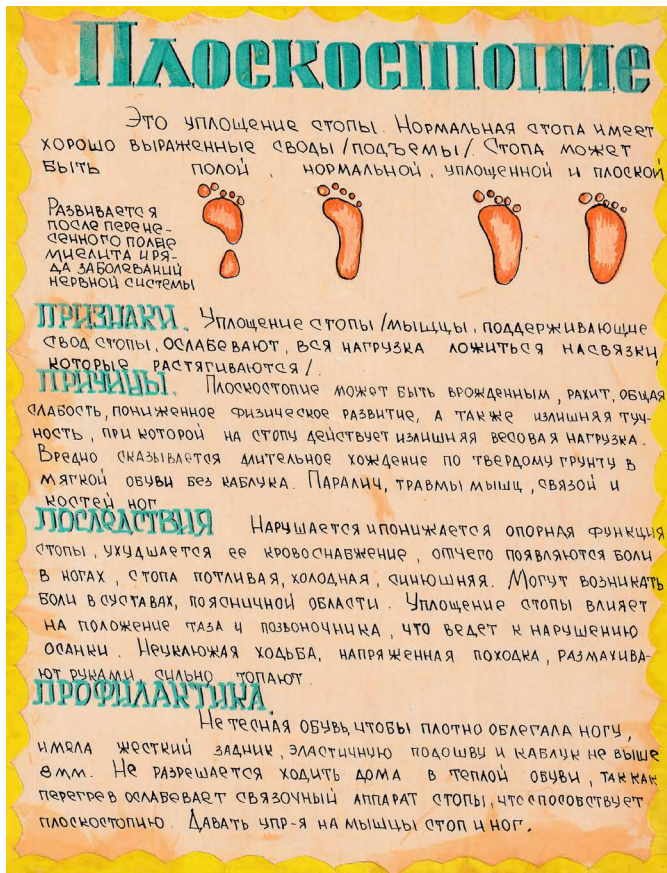 Плоскостопие
Это уплощение стопы. Нормальная стопа имеет
хорошо выраженные своды /подъемы/. Стопа может
быть полой, нормальной, уплощенной и плоской
Развивается
после перене-
сенного полие
миелита и ря-
да заболеваний
нервной системы
ПРИЗНАКИ. Уплощение стопы /мышцы, поддерживающие
свод стопы, ослабевают, вся нагрузка ложиться на связки,
которые растягиваются/.
ПРИЧИНЫ. Плоскостопие может быть врожденным, рахит, общая
слабость, пониженное физическое развитие, а также излишняя туч-
ность, при которой на стопу действует излишняя весовая нагрузка.
Вредно сказывается длительное хождение по твердому грунту в
мягкой обуви без каблука. Паралич, травмы мышц, связой и
костей ног
ПОСЛЕДСТВИЯ Нарушается и понижается опорная функция
стопы, ухудшается ее кровоснабжение, отчего появляются боли
в ногах, стопа потливая, холодная, синюшняя. Могут возникать
боли в суставах, поясничной области. Уплощение стопы влияет
на положение таза и позвоночника, что ведет к нарушению
осанки. Неуклюжая ходьба, напряженная походка, размахива-
ют руками, сильно топают.
ПРОФИЛАКТИКА.
Не тесная обувь, чтобы плотно облегала ногу,
имела жесткий задник, эластичную подошву и каблук не выше
8мм. Не разрешается ходить дома в теплой обуви, так как
перегрев ослабевает связочный аппарат стопы, что способствует
плоскостопию. Давать упр-я на мышцы стоп и ног.